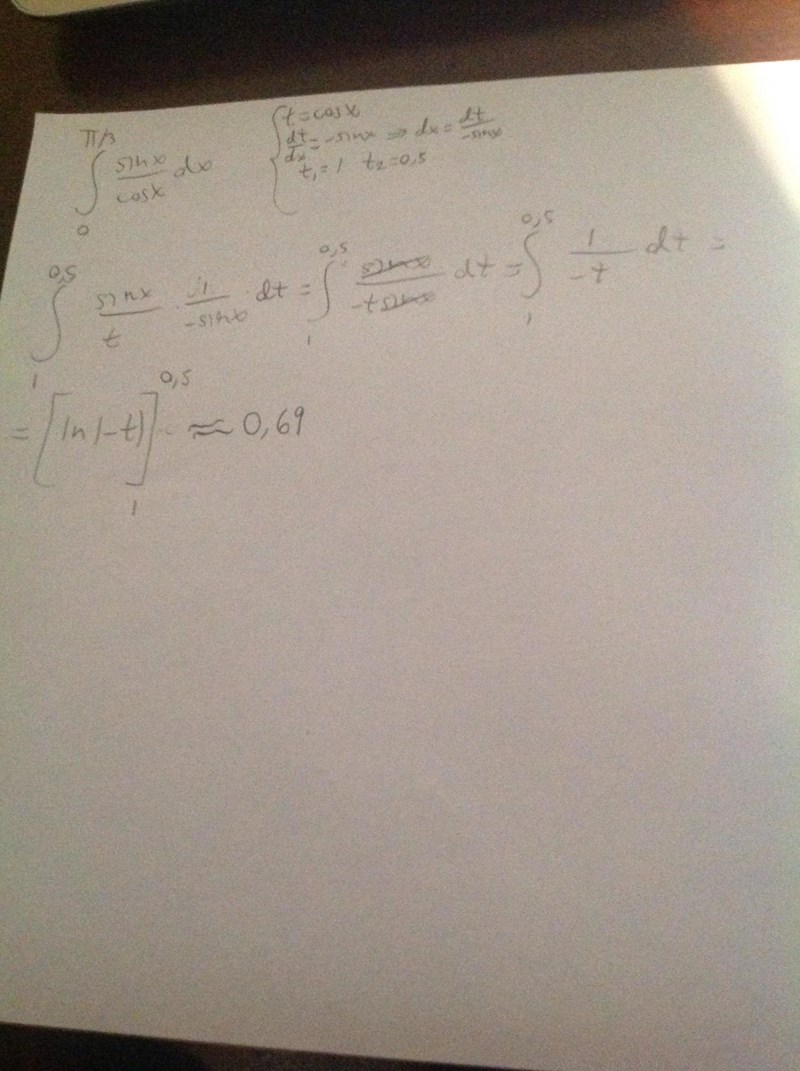 ∫₀^{π/3} sinx/cosx dx { t=cosx
dt/dx = -sinx ⇒ dx = dt/-sinx
t₁=1 t₂=0,5
∫₁^{0,5} sinx/t · 1/-sinx · dt = ∫₁^{0,5} sinx/-tsinx dt = ∫₁^{0,5} 1/-t dt =
= [ln|-t|]₁^{0,5} ≈ 0,69